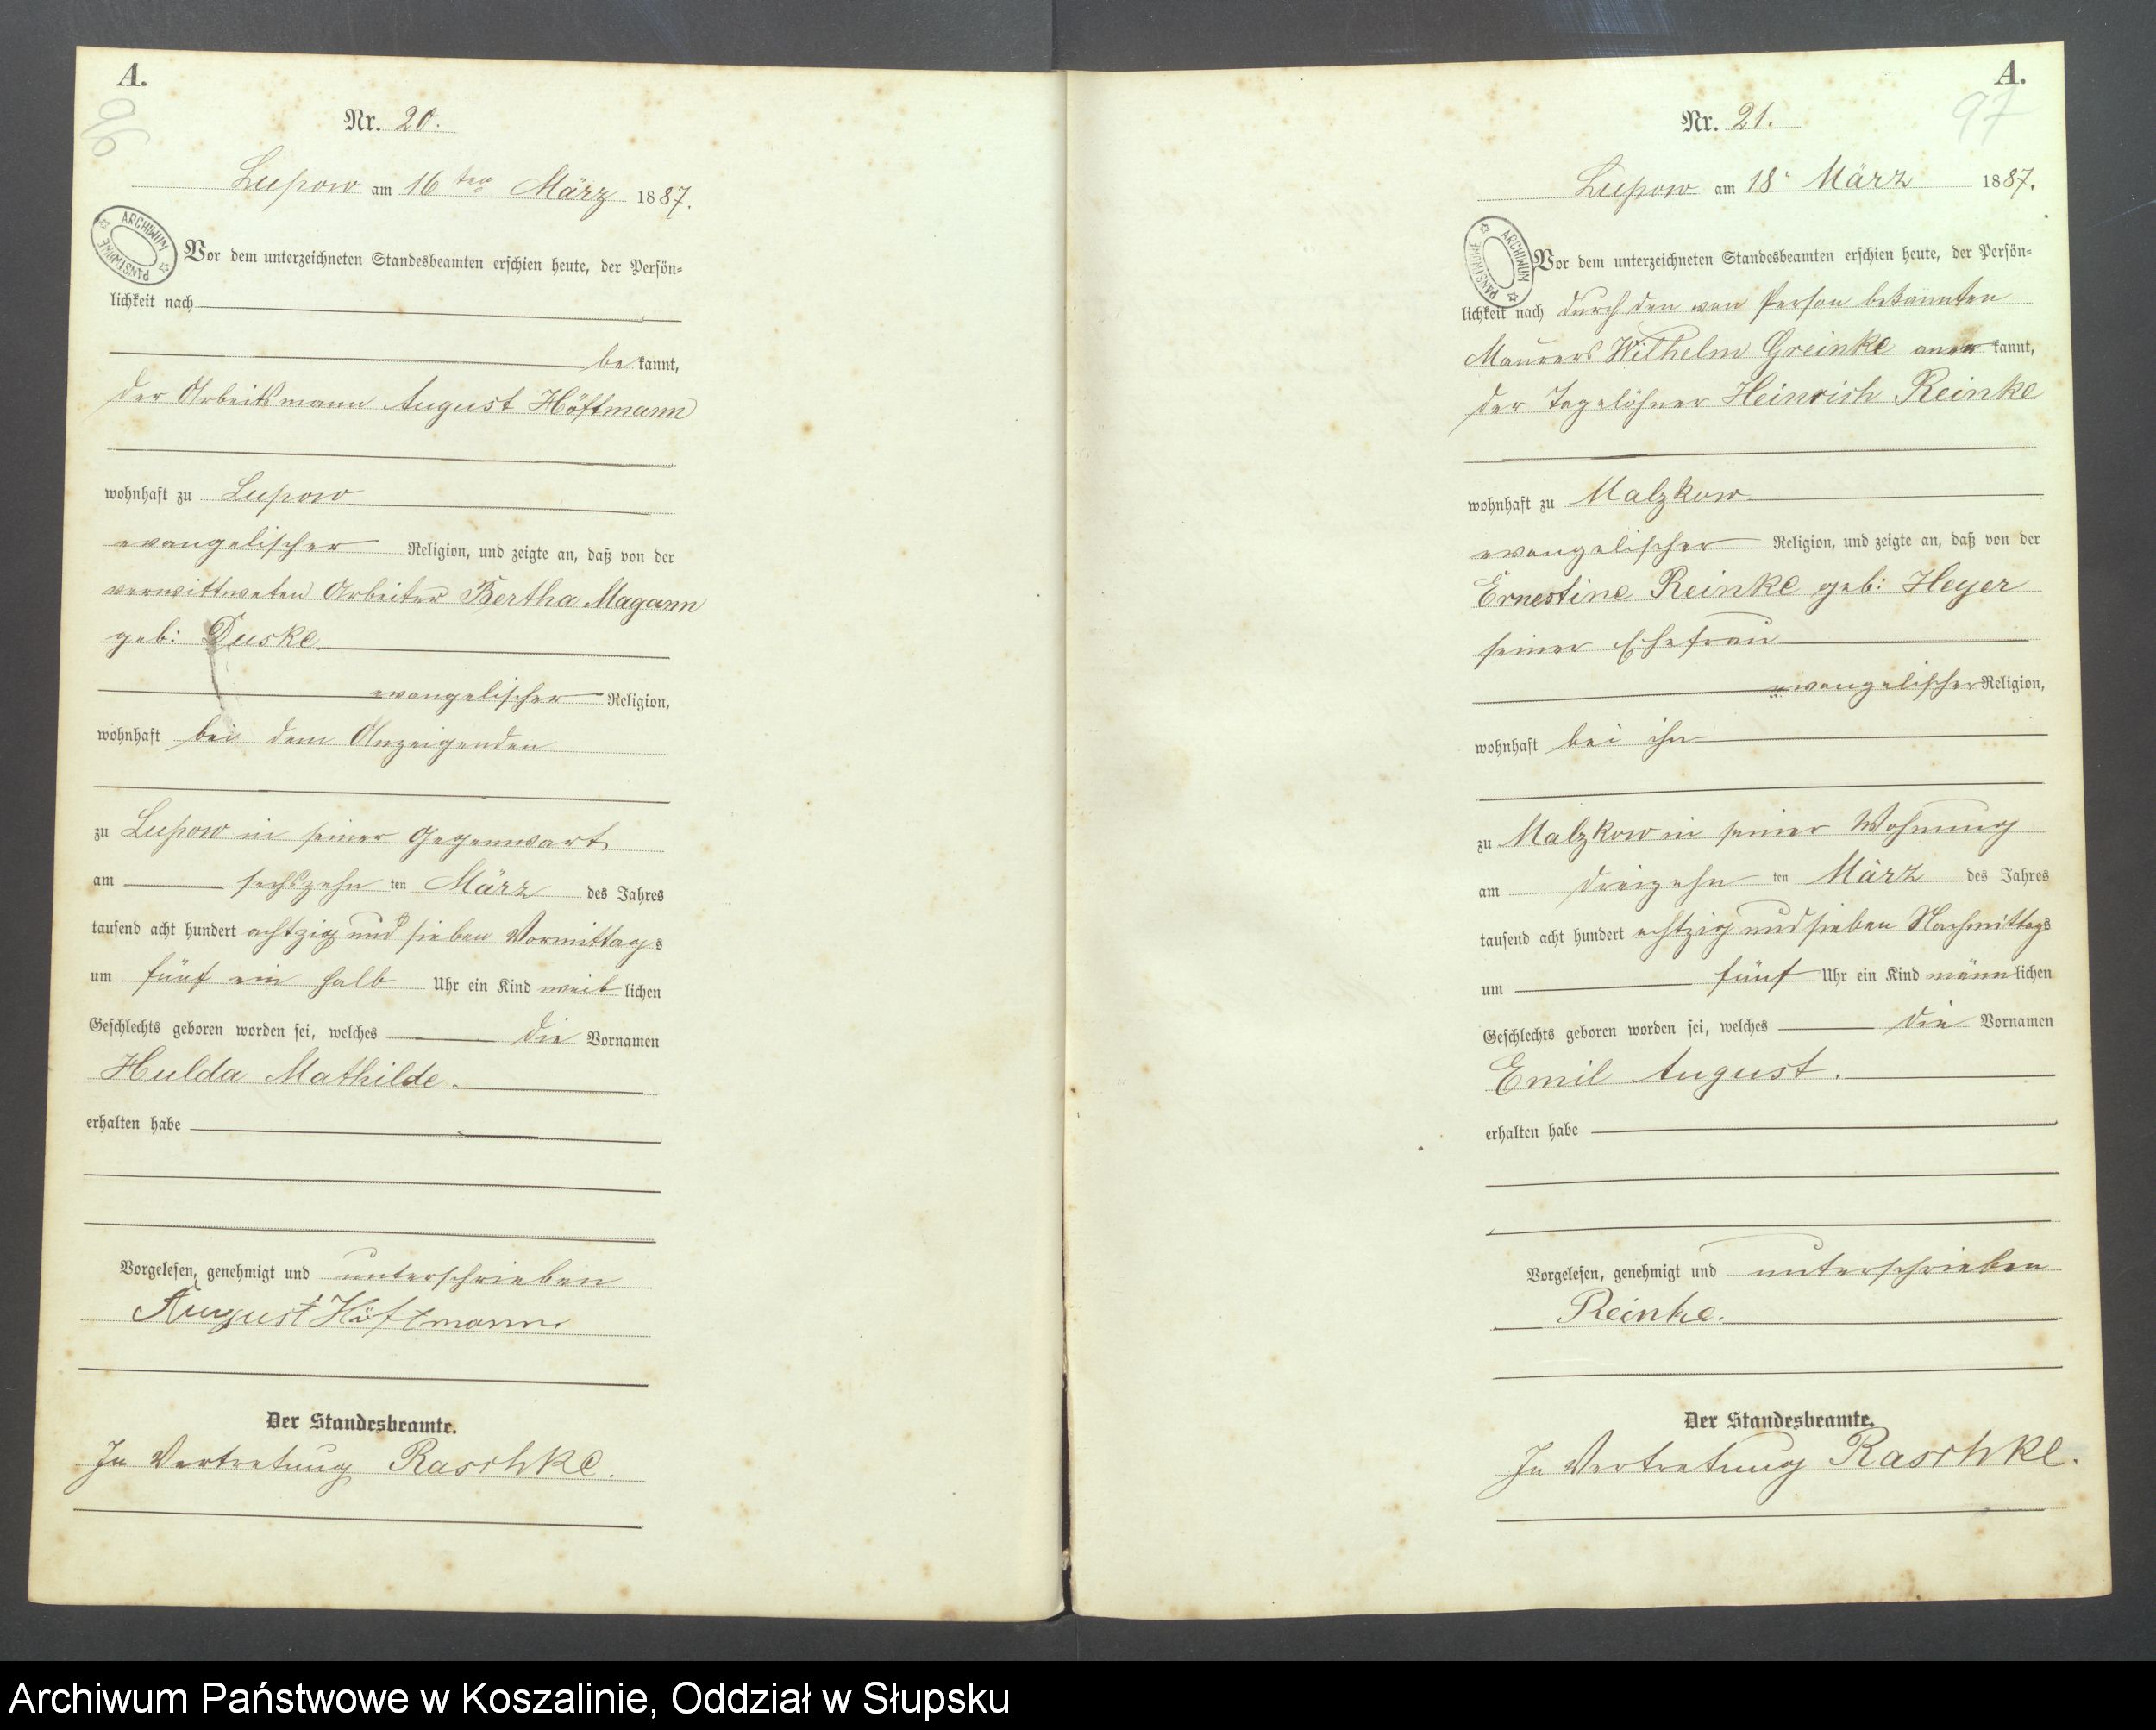 A.
96
Nr. 20.
Lupow am 16ten März 1887.
ARCHIWUM PAŃSTWOWE
Vor dem unterzeichneten Standesbeamten erschien heute, der Persön-
lichkeit nach
bekannt,
der Arbeitsmann August Höftmann
wohnhaft zu Lupow
evangelischer Religion, und zeigte an, daß von der
verwittweten Arbeiter Bertha Magann
geb: Duske
evangelischer Religion,
wohnhaft bei dem Anzeigenden
zu Lupow in seiner Gegenwart
am sechszehn ten März des Jahres
tausend acht hundert achtzig und sieben Vormittags
um fünf ein halb Uhr ein Kind weiblichen
Geschlechts geboren worden sei, welches die Vornamen
Hulda Mathilde.
erhalten habe
Vorgelesen, genehmigt und unterschrieben
August Höftmann
Der Standesbeamte.
In Vertretung Raschke.
A.
97
Nr. 21.
Lupow am 18" März 1887.
ARCHIWUM PAŃSTWOWE
Vor dem unterzeichneten Standesbeamten erschien heute, der Persön-
lichkeit nach durch den von Person bekannten
Maurers Wilhelm Greinke anerkannt,
der Tagelöhner Heinrich Reinke
wohnhaft zu Malzkow
evangelischer Religion, und zeigte an, daß von der
Ernestine Reinke geb: Heyer
seiner Ehefrau
evangelischer Religion,
wohnhaft bei ihm
zu Malzkow in seiner Wohnung
am dreizehn ten März des Jahres
tausend acht hundert achtzig und sieben Nachmittags
um fünf Uhr ein Kind männlichen
Geschlechts geboren worden sei, welches die Vornamen
Emil August.
erhalten habe
Vorgelesen, genehmigt und unterschrieben
Reinke.
Der Standesbeamte.
In Vertretung Raschke.
Archiwum Państwowe w Koszalinie, Oddział w Słupsku